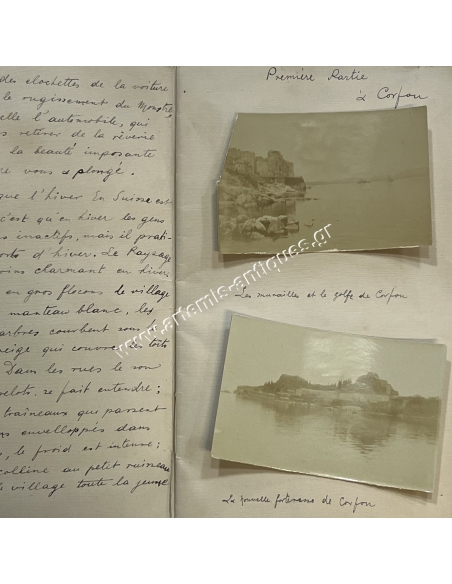 des clochettes de la voiture
le rugissement du Monstre,
elle l'automobile, qui
retirer de la rêverie
la beauté imposante
vous a plongé.
que l'hiver En Suisse est
c'est qu'en hiver les gens
inactifs, mais il prati-
d'hiver. Le Paysage
charmant en hiver
en gros flocons le village
manteau blanc, les
arbres courbent sous
neige qui couvre les toits
Dans les rues le son
se fait entendre;
traîneaux qui passent
enveloppés dans
, le froid est intense;
colline au petit ruisseau
le village toute la jeune
Première Partie
à Corfou
Les murailles et le golfe de Corfou
La nouvelle forteresse de Corfou
www.artemis-antiques.gr